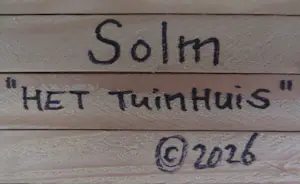 Solm
"HET TuinHuis"
© 2026